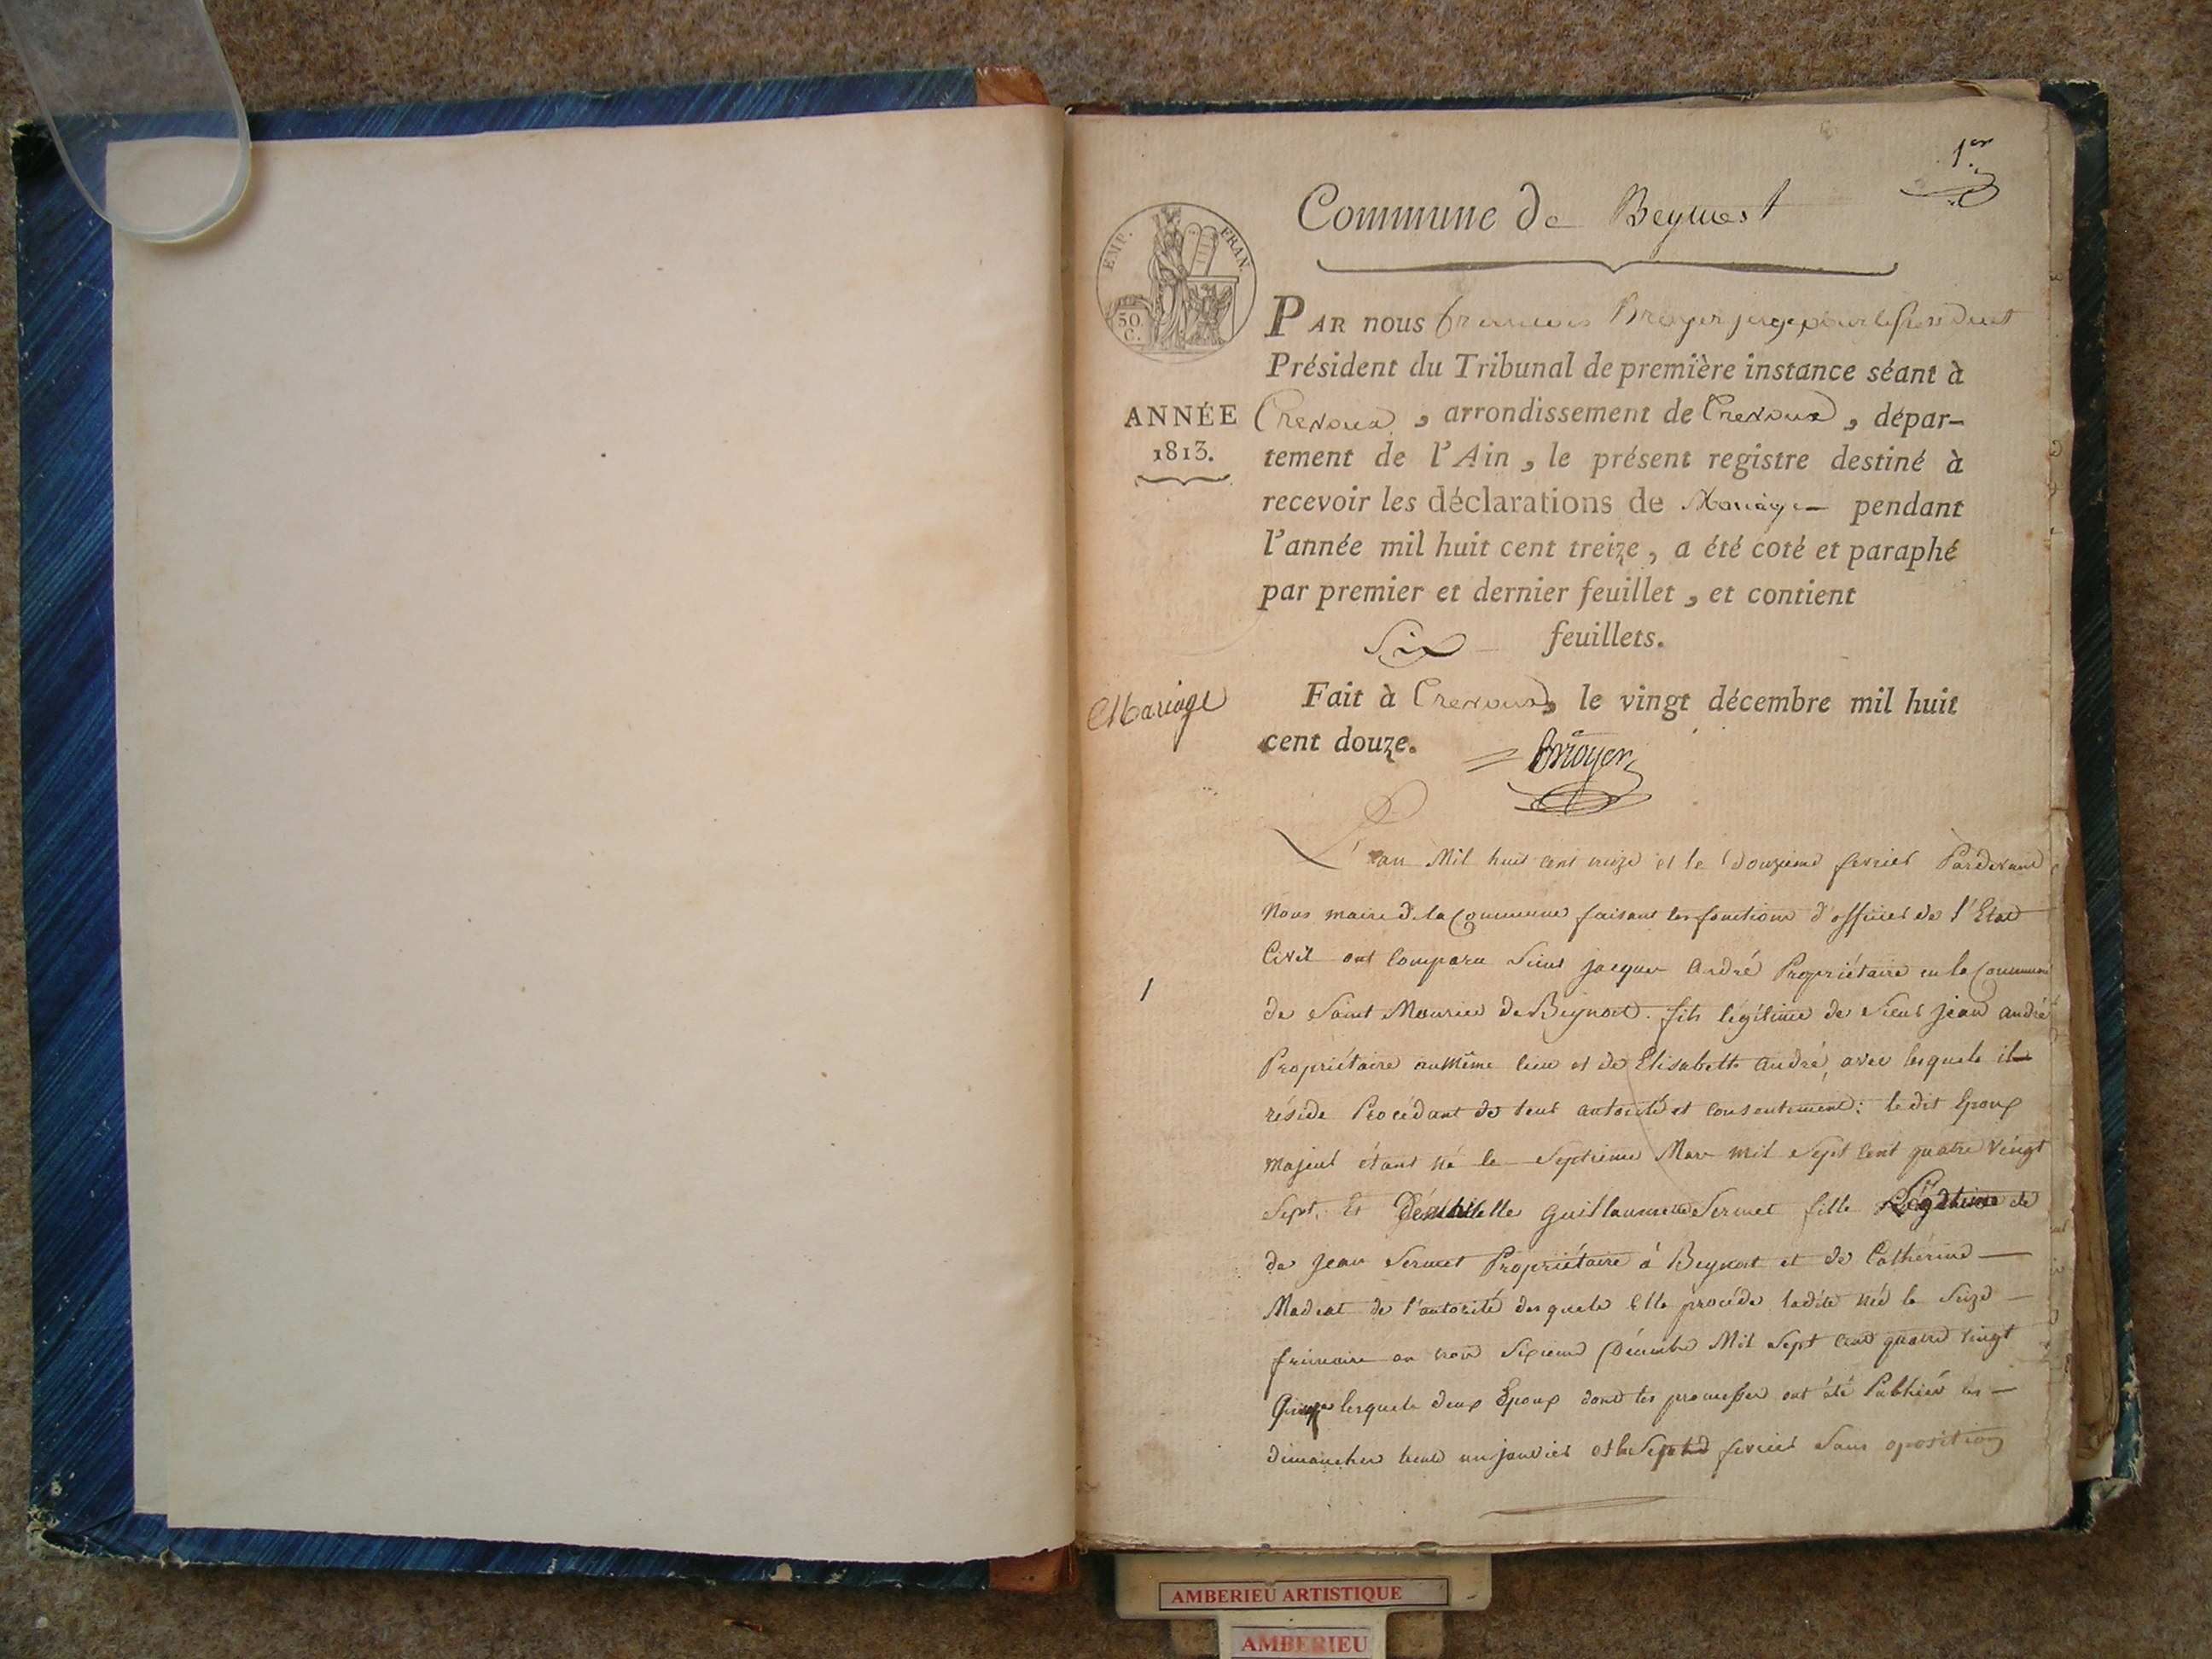 1er
Commune de Beynost
EMP. FRAN.
50 C.
PAR nous françois Broyer juge pour le président
Président du Tribunal de première instance séant à
ANNÉE
1813.
Trevoux, arrondissement de Trevoux, dépar-
tement de l'Ain, le présent registre destiné à
recevoir les déclarations de Mariage pendant
l'année mil huit cent treize, a été coté et paraphé
par premier et dernier feuillet, et contient
Six feuillets.
Mariage
Fait à Trevoux, le vingt décembre mil huit
cent douze.
Broyer
L'an Mil huit cent treize et le douzieme fevrier Pardevant
Nous maire de la Commune faisant les fonctions d'officier de l'Etat
Civil ont Comparu Sieur jacques André Propriétaire en la Commune
1
de Saint Maurice de Beynost. fils légitime de Sieur jean andré
Propriétaire au Même lieu et de Elisabeth andré, avec lesquels il
réside Procédant de leur autorité et consentement: le dit Epoux
majeur étant né le Septieme Mars mil Sept Cent quatre Vingt
Sept. Et Demoiselle Guillaumette Sermet fille Légitime de
de jean Sermet Propriétaire à Beynost et de Cathérine
Madiat de l'autorité desquels Elle procéde ladite née le Seize
frimaire an trois Sixieme Décembre Mil Sept Cent quatre vingt
Quinze lesquels deux Epoux dont les promesses ont été Publiées les
dimanches trente un janvier et le Sept fevrier Sans oposition
AMBERIEU ARTISTIQUE
AMBERIEU